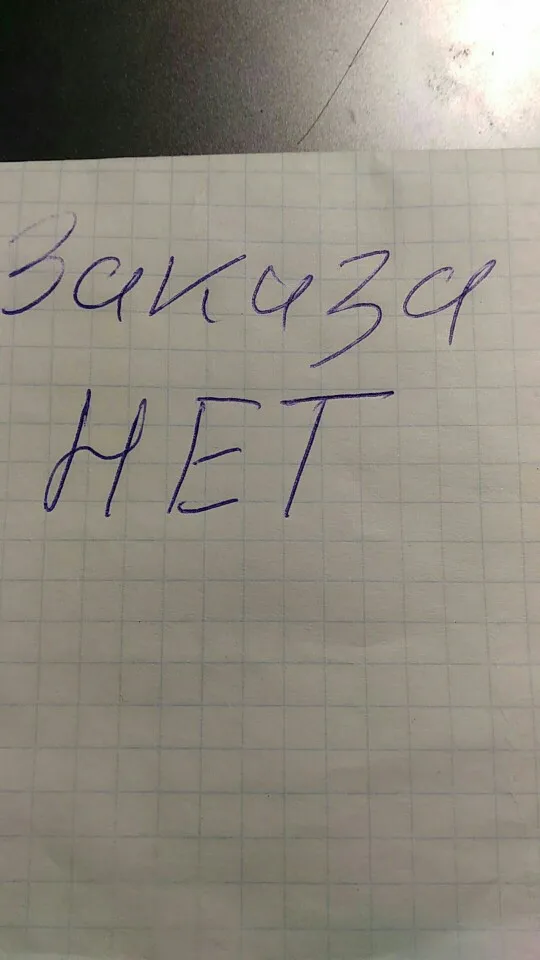 Заказа
НЕТ